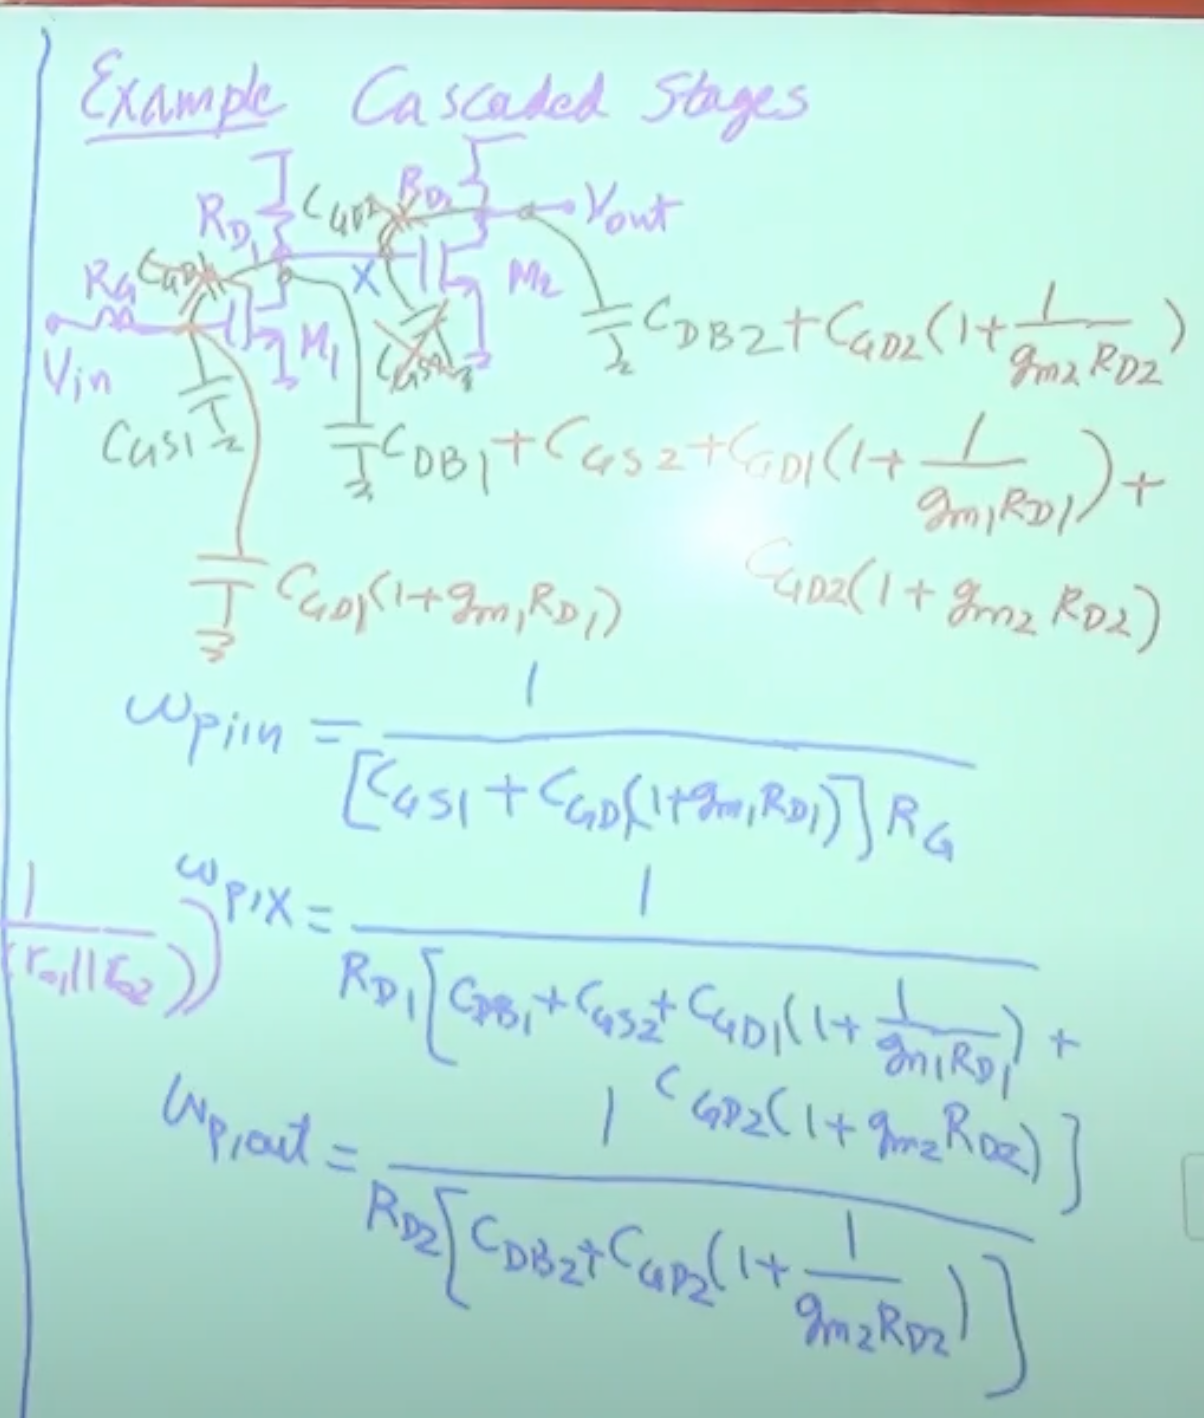 Example Cascaded Stages
R_D1 C_GD2 R_D2 Vout
R_G C_GD1 X M_2
Vin M_1 C_GS2
C_DB2 + C_GD2(1 + 1/(g_m2 R_D2))
C_GS1 C_DB1 + C_GS2 + C_GD1(1 + 1/(g_m1 R_D1)) +
C_GD2(1 + g_m2 R_D2)
C_GD1(1 + g_m1 R_D1)
ω_p,in = 1/([C_GS1 + C_GD1(1 + g_m1 R_D1)] R_G)
1/(r_o1 || r_o2))
ω_p,X = 1/(R_D1[C_DB1 + C_GS2 + C_GD1(1 + 1/(g_m1 R_D1)) +
C_GD2(1 + g_m2 R_D2)])
ω_p,out = 1/(R_D2[C_DB2 + C_GD2(1 + 1/(g_m2 R_D2))])